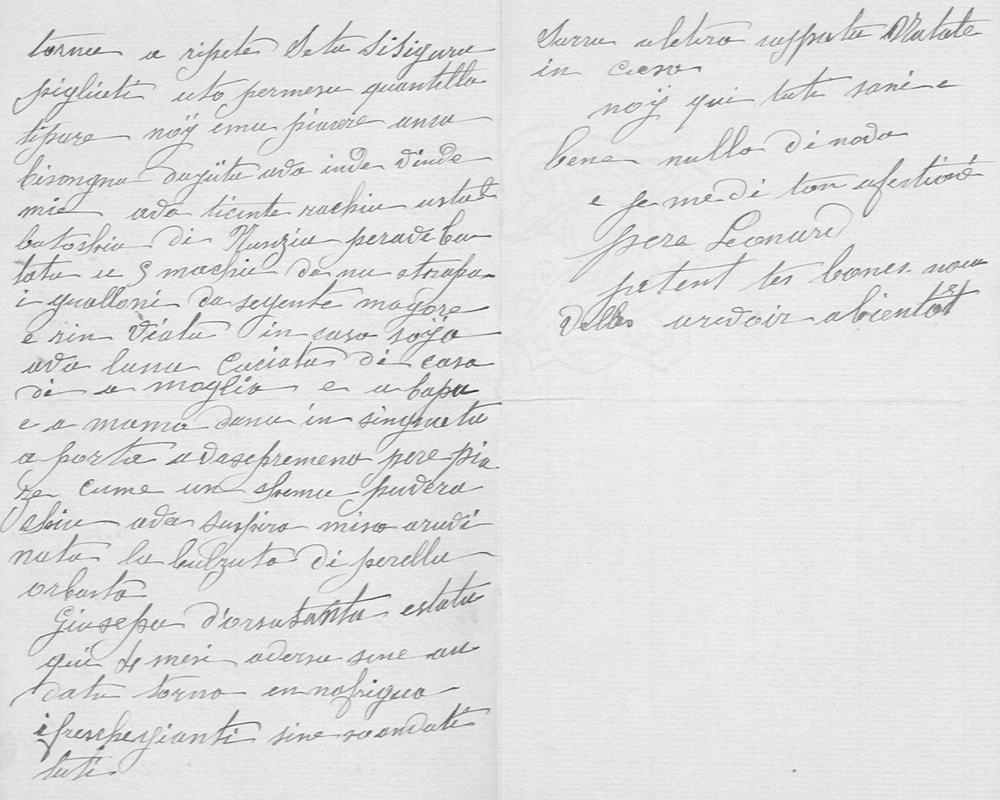 torna a ripete Se tu Si Siguru
pigliati uto permesu quantillo
tipare nöÿ emu piacere ansu
bisongna dajuta ada inde Vinde
mie ada ticinte rachiu ustad
batoshiu di Nunziu peradi ba
tata u 9 machiu da na strapa
i qualloni da seyente magore
e rin Viatu in casa soÿa
ada luna Caciata di casa
di a moglia e a bapu
e a mama danu in singuetu
a porta adasepremeno pere piu
ze cume un shemu pudera
Shiu ada suspiro miso arudi
nata la balzata di perella
orbasta
Giusepu d'orsusantu estatu
qui 4 mesi adersu sine an
datu torna en nafrigua
i freschegianti sine so andati
tuti
Sarra aletira aspata Natale
in casa
nöÿ qui tuti sani e
bene nulla di nodo
e je me di ton afectioné
pere Leonard
petent tes bones nou
Velles aredoir abientôt